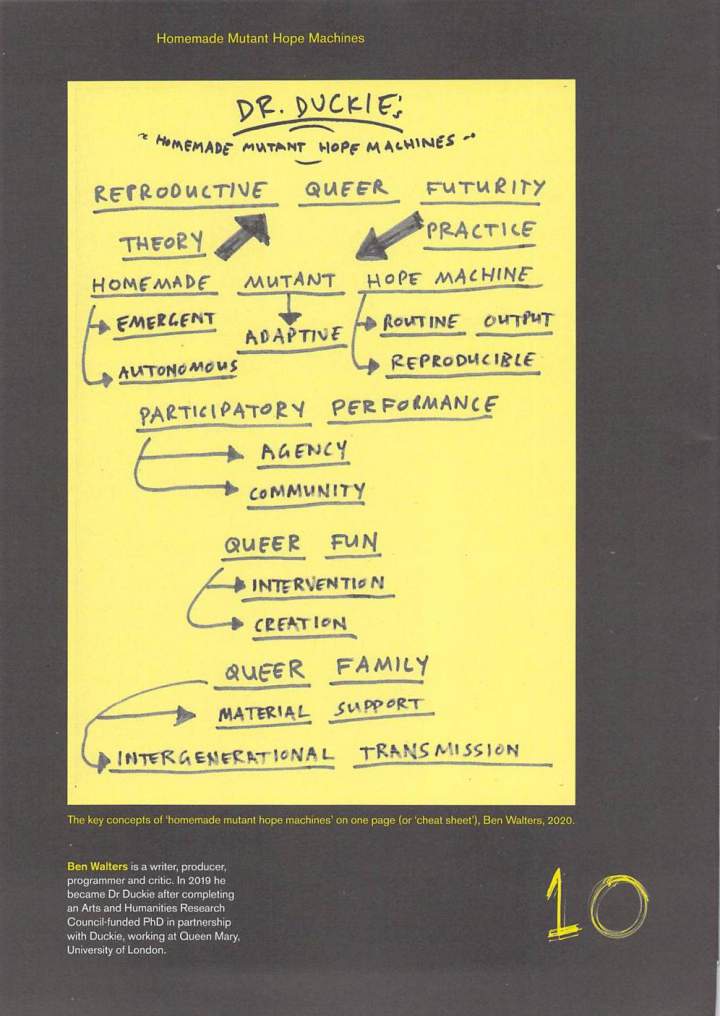 Homemade Mutant Hope Machines
DR. DUCKIE's
~ HOMEMADE MUTANT HOPE MACHINES ~
REPRODUCTIVE QUEER FUTURITY
THEORY PRACTICE
HOMEMADE MUTANT HOPE MACHINE
EMERGENT ADAPTIVE ROUTINE OUTPUT
AUTONOMOUS REPRODUCIBLE
PARTICIPATORY PERFORMANCE
AGENCY
COMMUNITY
QUEER FUN
INTERVENTION
CREATION
QUEER FAMILY
MATERIAL SUPPORT
INTERGENERATIONAL TRANSMISSION
The key concepts of ‘homemade mutant hope machines’ on one page (or ‘cheat sheet’), Ben Walters, 2020.
Ben Walters is a writer, producer,
programmer and critic. In 2019 he
became Dr Duckie after completing
an Arts and Humanities Research
Council-funded PhD in partnership
with Duckie, working at Queen Mary,
University of London.
10